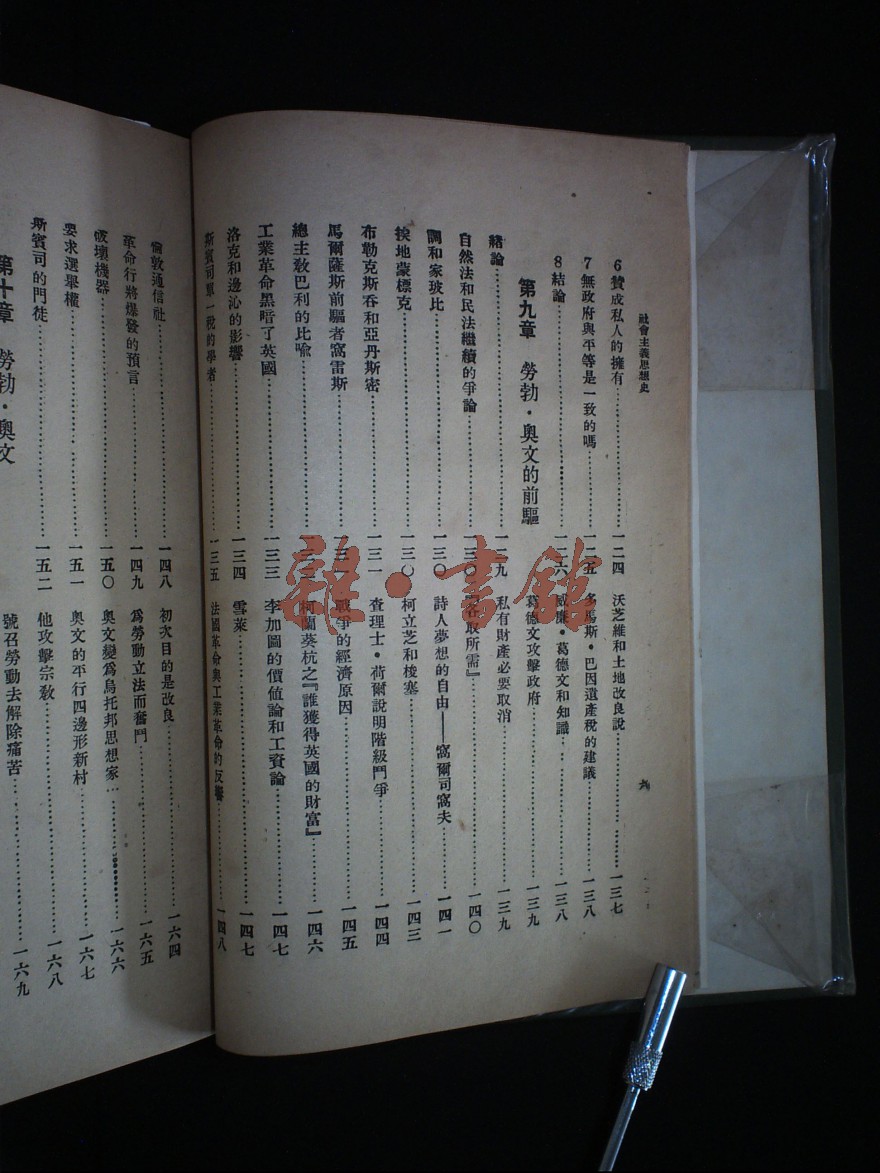 社會主義思想史
6 贊成私人的擁有……一二四
7 無政府與平等是一致的嗎……一二五
8 結論……一二六
第九章　勞勃·奧文的前驅
緒論……一二九
自然法和民法繼續的爭論……一三〇
調和家玻比……一三〇
挨地蒙標克……一三〇
布勒克斯吞和亞丹斯密……一三一
馬爾薩斯前驅者窩雷斯……一三一
總主教巴利的比喻……
工業革命黑暗了英國……一三三
洛克和邊沁的影響……一三四
斯賓司單一稅的學者……一三五
沃芝維和土地改良說……一三七
多馬斯·巴因遺產稅的建議……一三八
威廉·葛德文和知識……一三八
葛德文攻擊政府……一三九
私有財產必要取消……一三九
取所需』……一四〇
詩人夢想的自由——窩爾司窩夫……一四一
柯立芝和梭塞……一四三
查理士·荷爾說明階級鬥爭……一四四
戰爭的經濟原因……一四五
柯蘭葵杭之『誰獲得英國的財富』……一四六
李加圖的價值論和工資論……一四七
雪萊……一四七
法國革命與工業革命的反響……一四八
六
倫敦通信社……一四八
革命行將爆發的預言……一四九
破壞機器……一五〇
要求選舉權……一五一
斯賓司的門徒……一五二
第十章　勞勃·奧文
初次目的是改良……一六四
為勞動立法而奮鬥……一六五
奧文變為烏托邦思想家……一六六
奧文的平行四邊形新村……一六七
他攻擊宗教……一六八
號召勞動去解除痛苦……一六九
雜·書館